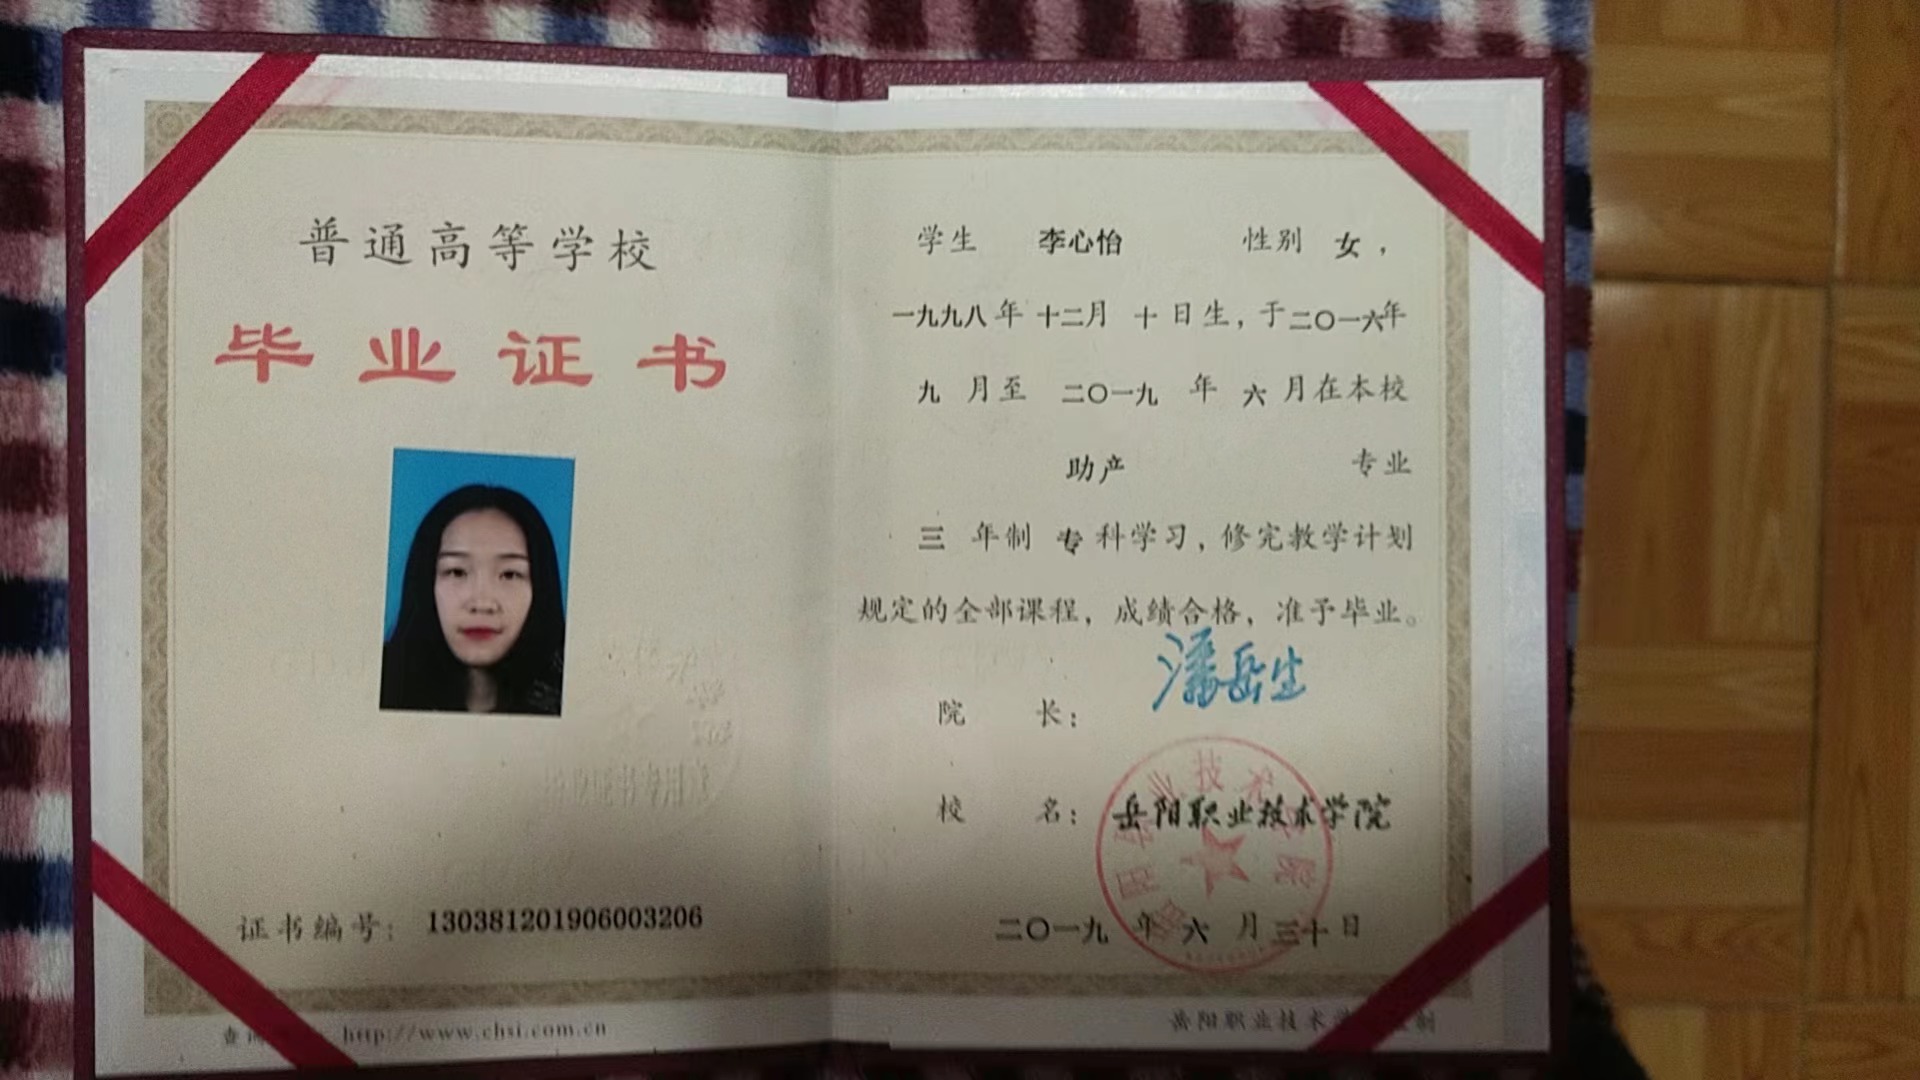 普通高等学校
毕业证书
证书编号：130381201906003206
http://www.chsi.com.cn
学生 李心怡 性别 女，
一九九八年十二月 十日生，于二〇一六年
九 月至 二〇一九 年 六 月在本校
助产 专业
三 年制 专科学习，修完教学计划
规定的全部课程，成绩合格，准予毕业。
院 长： 潘岳生
校 名： 岳阳职业技术学院
二〇一九 年 六 月 三十日
岳阳职业技术学 制